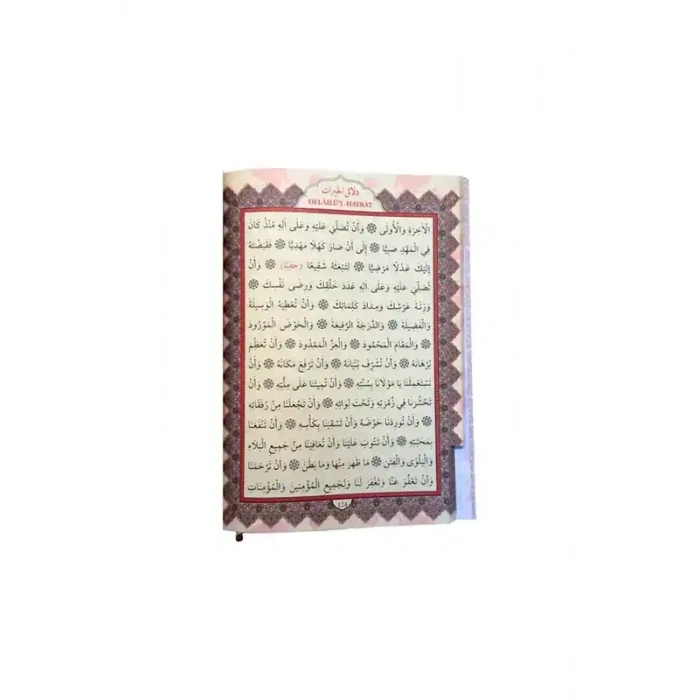 دلائل الخيرات
DELÂİLÜ'L-HAYRÂT
الْاٰخِرَةِ وَالْأُولٰى ❁ وَأَنْ تُصَلِّيَ عَلَيْهِ وَعَلٰى اٰلِهِ مُنْذُ كَانَ
فِي الْمَهْدِ صَبِيًّا ❁ إِلٰى أَنْ صَارَ كَهْلًا مَهْدِيًّا ❁ فَقَبَضْتَهُ
إِلَيْكَ عَدْلًا مَرْضِيًّا ❁ لِتَبْعَثَهُ شَفِيعًا (حَفِيًّا) ❁ وَأَنْ
تُصَلِّيَ عَلَيْهِ وَعَلٰى اٰلِهِ عَدَدَ خَلْقِكَ وَرِضٰى نَفْسِكَ ❁
وَزِنَةَ عَرْشِكَ وَمِدَادَ كَلِمَاتِكَ ❁ وَأَنْ تُعْطِيَهُ الْوَسِيلَةَ
وَالْفَضِيلَةَ ❁ وَالدَّرَجَةَ الرَّفِيعَةَ ❁ وَالْحَوْضَ الْمَوْرُودَ
❁ وَالْمَقَامَ الْمَحْمُودَ ❁ وَالْعِزَّ الْمَمْدُودَ ❁ وَأَنْ تُعَظِّمَ
بُرْهَانَهُ ❁ وَأَنْ تُشَرِّفَ بُنْيَانَهُ ❁ وَأَنْ تَرْفَعَ مَكَانَهُ ❁ وَأَنْ
تَسْتَعْمِلَنَا يَا مَوْلَانَا بِسُنَّتِهِ ❁ وَأَنْ تُمِيتَنَا عَلٰى مِلَّتِهِ ❁ وَأَنْ
تَحْشُرَنَا فِي زُمْرَتِهِ وَتَحْتَ لِوَائِهِ ❁ وَأَنْ تَجْعَلَنَا مِنْ رُفَقَائِهِ
❁ وَأَنْ تُورِدَنَا حَوْضَهُ ❁ وَأَنْ تَسْقِيَنَا بِكَأْسِهِ ❁ وَأَنْ تَنْفَعَنَا
بِمَحَبَّتِهِ ❁ وَأَنْ تَتُوبَ عَلَيْنَا وَأَنْ تُعَافِيَنَا مِنْ جَمِيعِ الْبَلَاءِ
وَالْبَلْوٰى وَالْفِتَنِ ❁ مَا ظَهَرَ مِنْهَا وَمَا بَطَنَ ❁ وَأَنْ تَرْحَمَنَا
❁ وَأَنْ تَعْفُوَ عَنَّا وَتَغْفِرَ لَنَا وَلِجَمِيعِ الْمُؤْمِنِينَ وَالْمُؤْمِنَاتِ
124